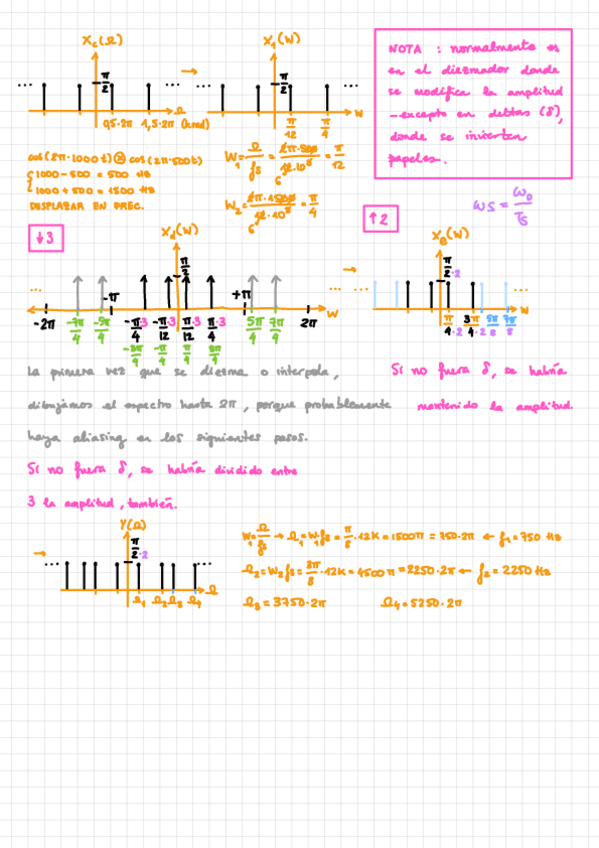 Xc(Ω)
X₁(W)
π/2
π/2
0,5·2π 1,5·2π (krad)
Ω
π/12 π/4
W
NOTA : normalmente es
en el diezmador donde
se modifica la amplitud
-excepto en deltas (δ),
donde se invierten
papeles.
cos(2π·1000t) ⊗ cos(2π·500t)
{1000-500 = 500 Hz
1000+500 = 1500 Hz
DESPLAZAR EN FREC.
W₁ = Ω/fs = 2π·500/12·10³ = π/12
6
W₂ = 2π·1500/12·10³ = π/4
6
ωs = ω₀/Ts
↓3
Xd(W)
π/2
-2π -π +π 2π W
-7π/4 -5π/4 -π/4·3 -π/12·3 π/12·3 π/4·3 5π/4 7π/4
-3π/4 -π/4 π/4 3π/4
↑2
XB(W)
π/2·2
π/4·2 3π/4·2 5π/8 7π/8
W
La primera vez que se diezma o interpola,
dibujamos el espectro hasta 2π, porque probablemente
haya aliasing en los siguientes pasos.
Si no fuera δ, se habría
mantenido la amplitud.
Si no fuera δ, se habría dividido entre
3 la amplitud, también.
Y(Ω)
π/2·2
Ω₁ Ω₂ Ω₃ Ω₄ Ω
W = Ω/fs → Ω₁ = W₁fs = π/8·12K = 1500π = 750·2π ← f₁ = 750 Hz
Ω₂ = W₂fs = 3π/8·12K = 4500π = 2250·2π ← f₂ = 2250 Hz
Ω₃ = 3750·2π Ω₄ = 5250·2π